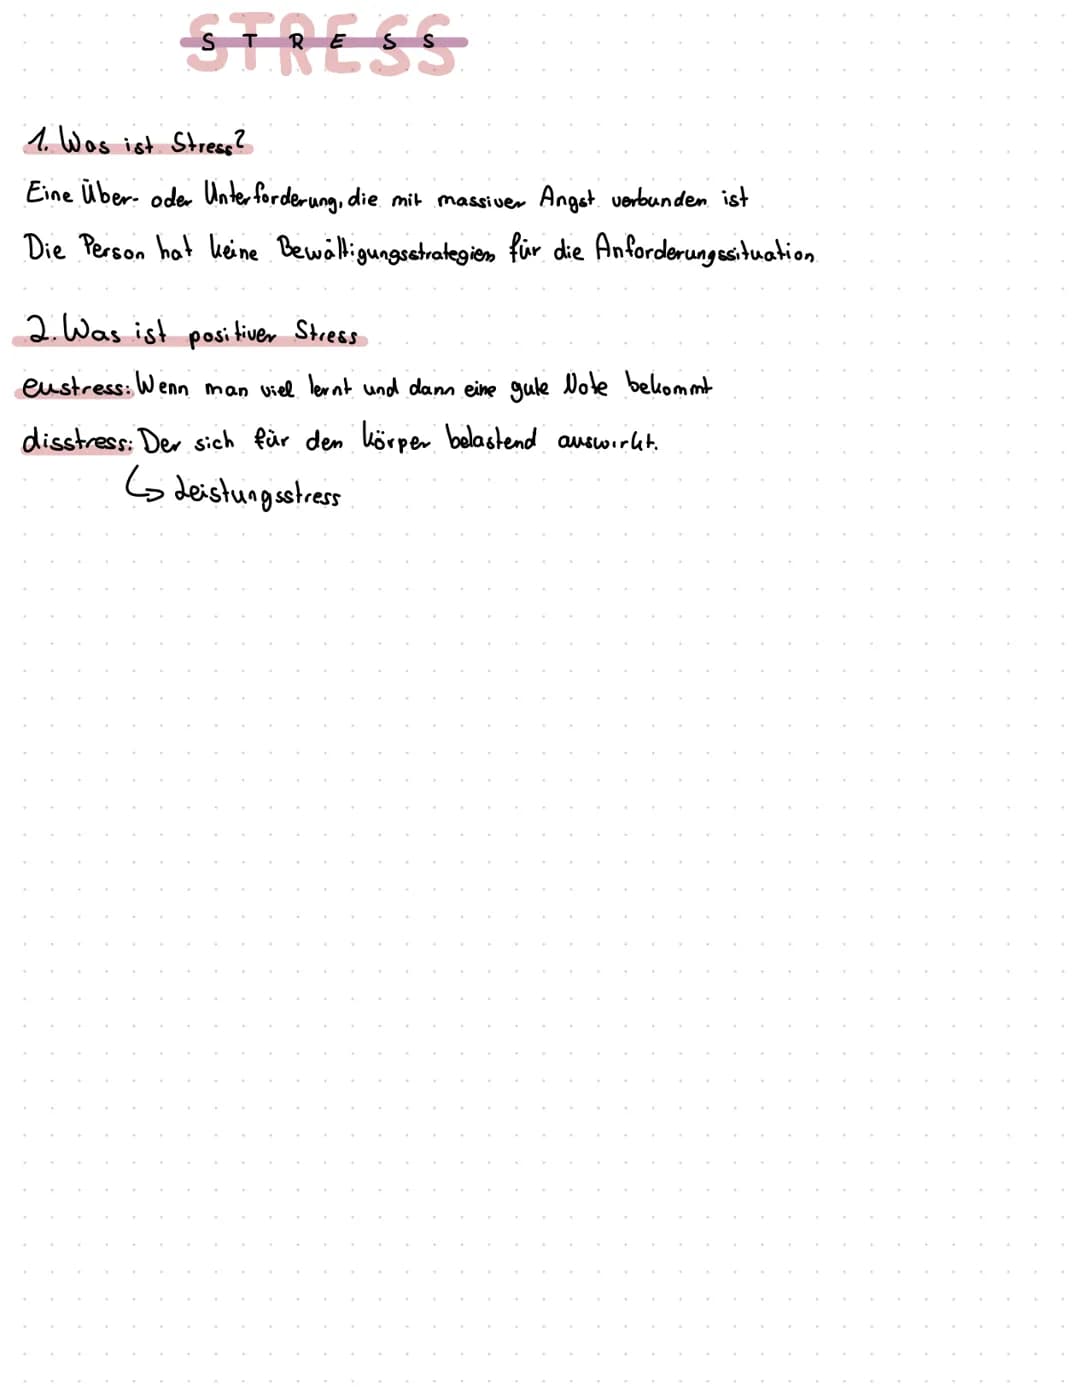 STRESS
1. Was ist Stress?
Eine Über- oder Unterforderung, die mit massiver Angst verbunden ist
Die Person hat keine Bewältigungsstrategien für die Anforderungssituation
2. Was ist positiver Stress
eustress: Wenn man viel lernt und dann eine gute Note bekommt
disstress: Der sich für den Körper belastend auswirkt.
↳ Leistungsstress